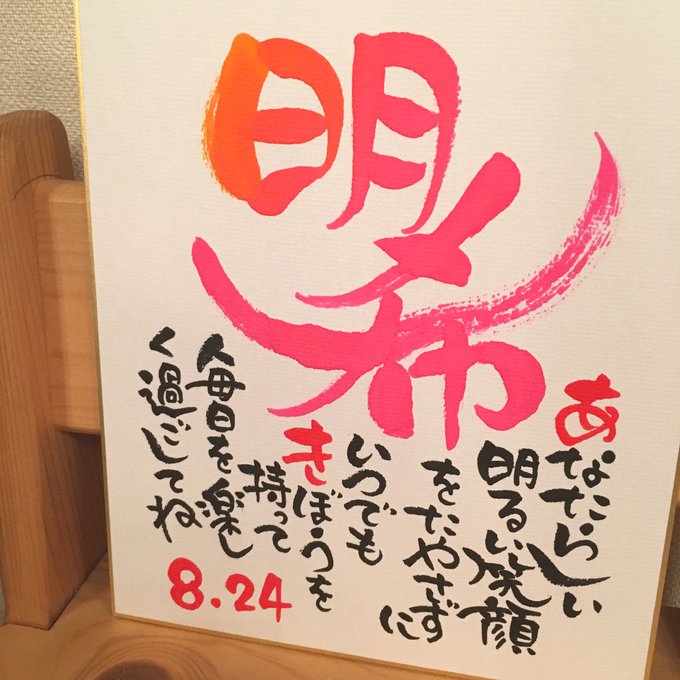 明希
あなたらしい
明るい笑顔
をたやさずに
いつでも
きぼうを
持って
毎日を楽し
く過ごしてね
8.24